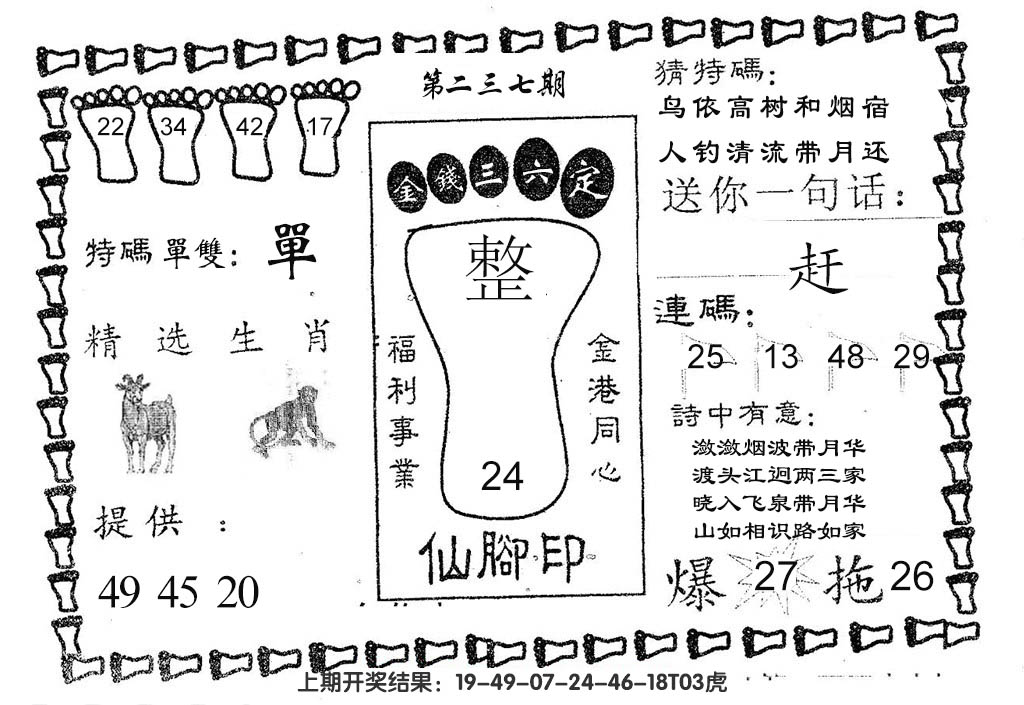 第二三七期
22 34 42 17
特碼單雙：單
精选生肖
提供：
49 45 20
金錢三六定
整
福利事業
金港同心
24
仙腳印
猜特碼：
鸟依高树和烟宿
人钓清流带月还
送你一句话：
赶
連碼：
25 13 48 29
詩中有意：
潋潋烟波带月华
渡头江迥两三家
晓入飞泉带月华
山如相识路如家
爆 27 拖 26
上期开奖结果：19-49-07-24-46-18T03虎